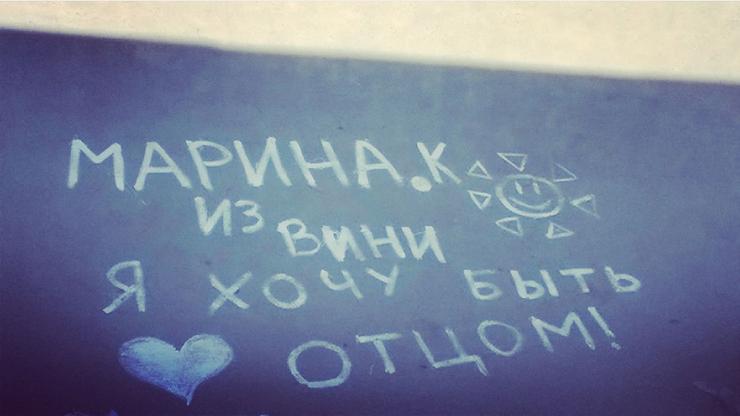 МАРИНА.К
ИЗ ВИНИ
Я ХОЧУ БЫТЬ
ОТЦОМ!